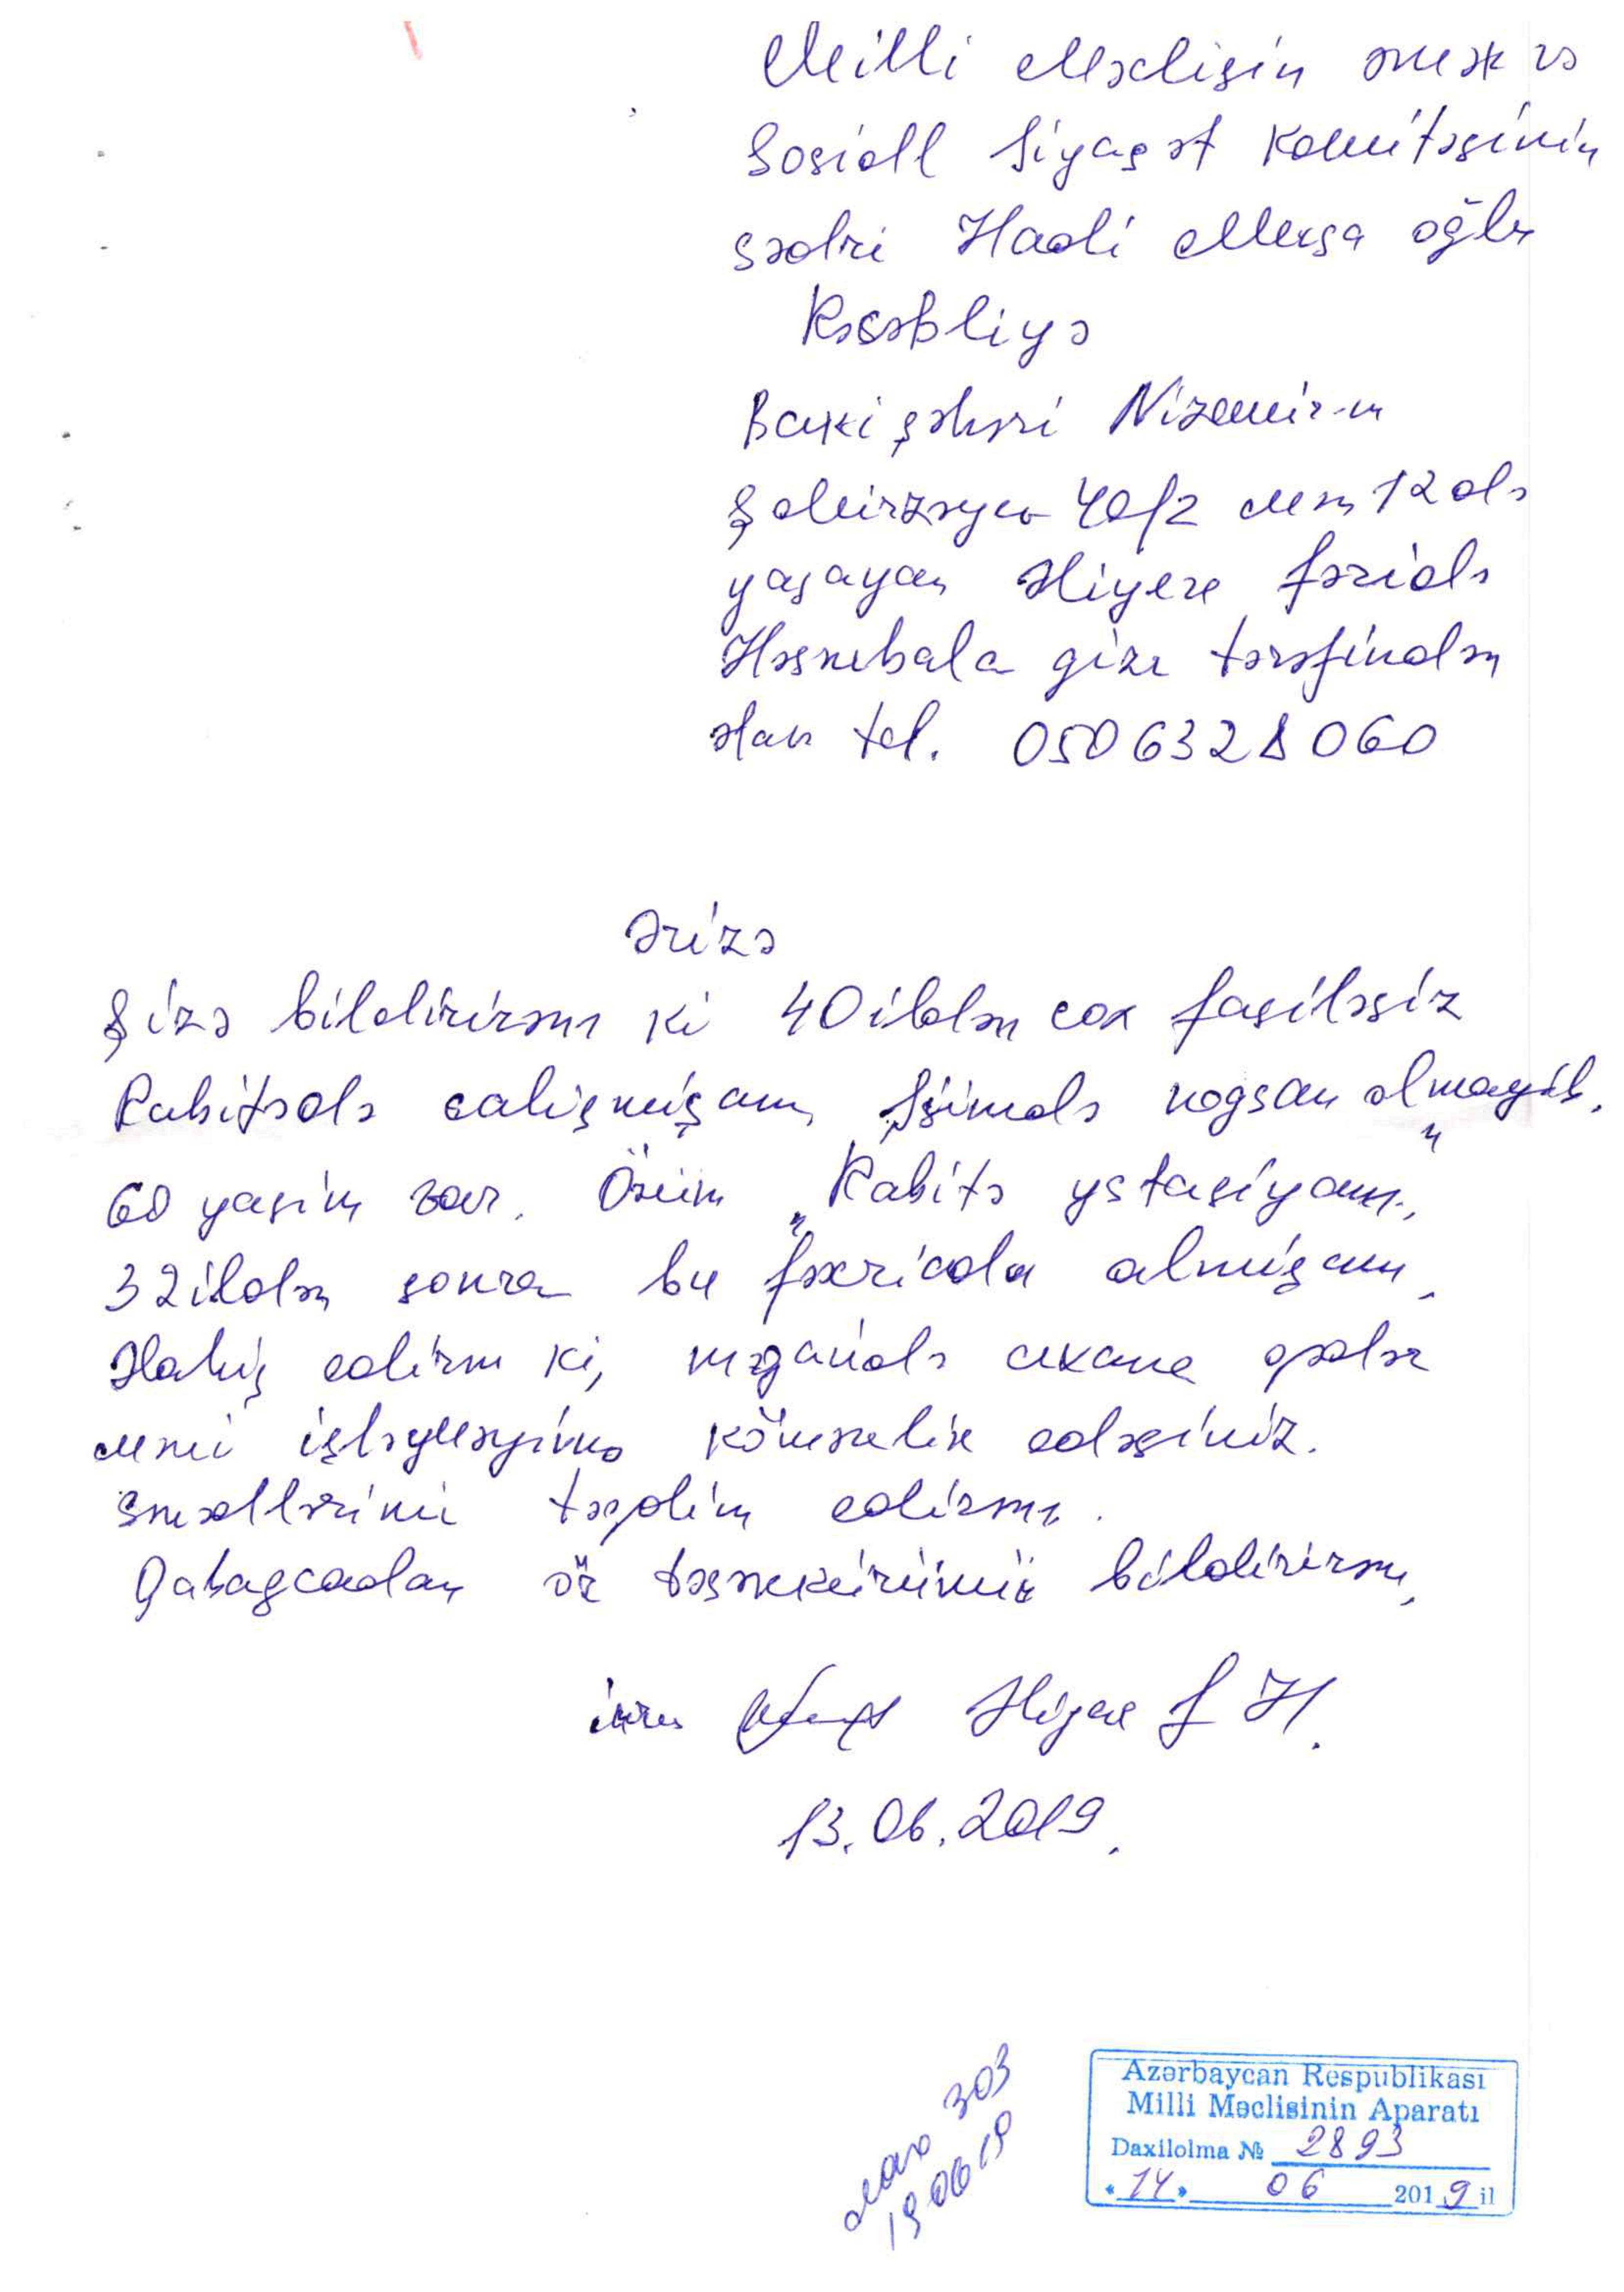 Milli Məclisin əmək və
Sosiall Siyasət Komitəsinin
sədri Hadi Musa oğlu
Rəcəbliyə
Baki şəhəri Nizami r-n
Ş Mirzəyev 40/2 mən 12 də
yaşayan Əliyeva Fəridə
Həsənbala qizı tərəfindən
əlav tel. 0506328060
Ərizə
Sizə bildirirəm ki 40 ildən cox fasiləsiz
Rabitədə calişmişam, İşimdə nogsan olmayıb.
60 yaşim var. Özüm „Rabitə ystasiyam„"
32 ildən sonra bu fəxri ada almişam.
Hahiş edirəm ki, məqamda cıxana qədər
məni işləməyimə köməklik edəsiniz.
Sənədlərimi təqdim edirəm.
Qabagcadan öz təşəkkürümü bildirirəm,
imza Əliyeva F H.
13.06.2019.
303
190619
Azərbaycan Respublikası
Milli Məclisinin Aparatı
Daxilolma № 2893
«14» 06 2019 il